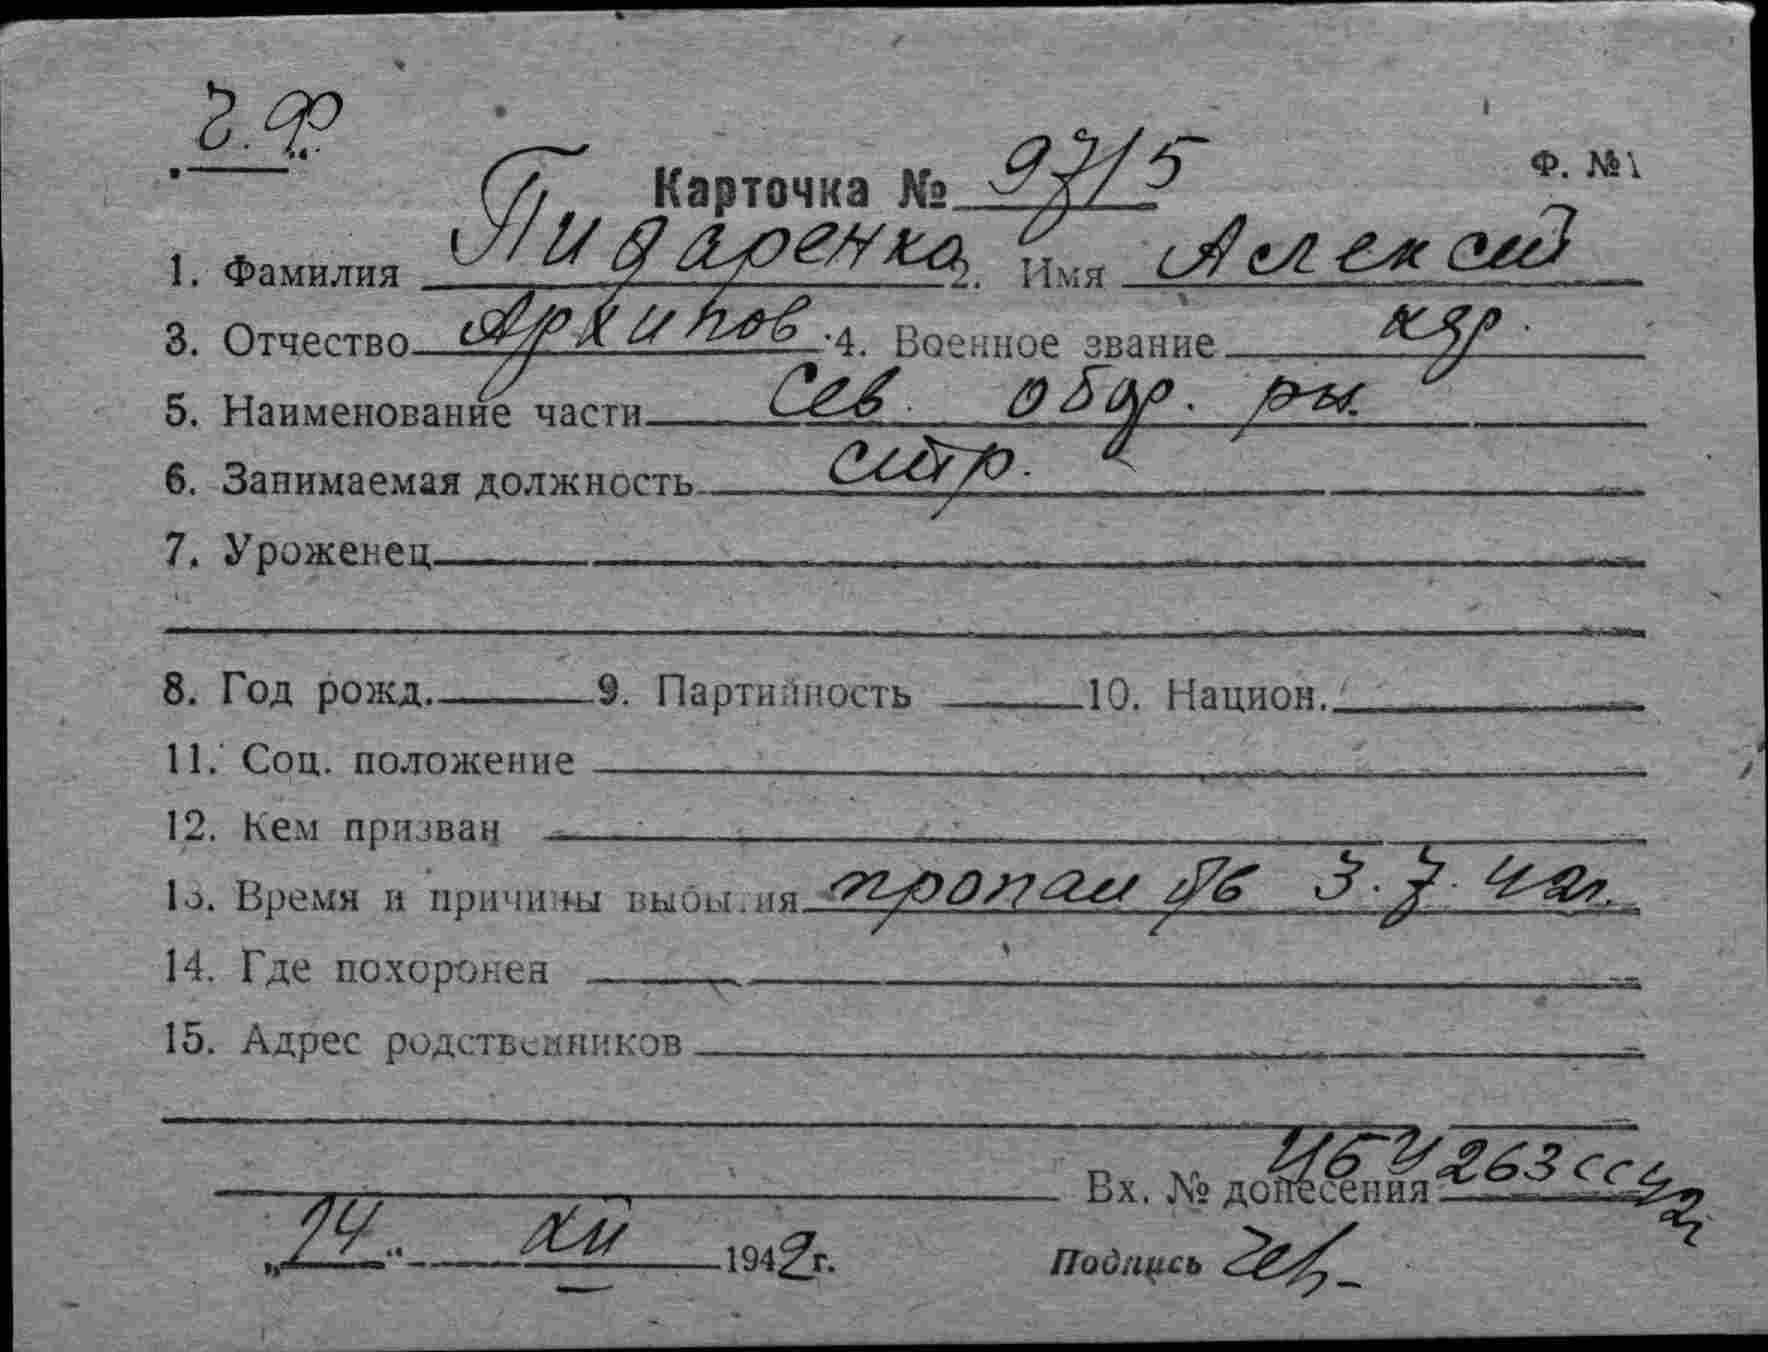 Ч.Ф.
Карточка № 97/5 Ф. №1
1. Фамилия Пидаренко 2. Имя Алексей
3. Отчество Архипов. 4. Военное звание кдр.
5. Наименование части Сев. обор. р-н.
6. Занимаемая должность стр.
7. Уроженец
8. Год рожд. 9. Партийность 10. Национ.
11. Соц. положение
12. Кем призван
13. Время и причины выбытия пропал б/в 3.7.42г.
14. Где похоронен
15. Адрес родственников
Вх. № донесения 263сс
„14“ XII 1942г. Подпись